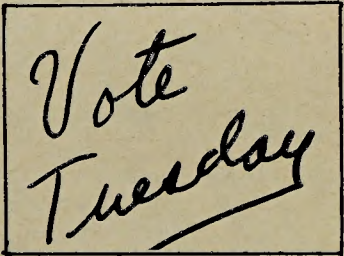 Vote
Tuesday